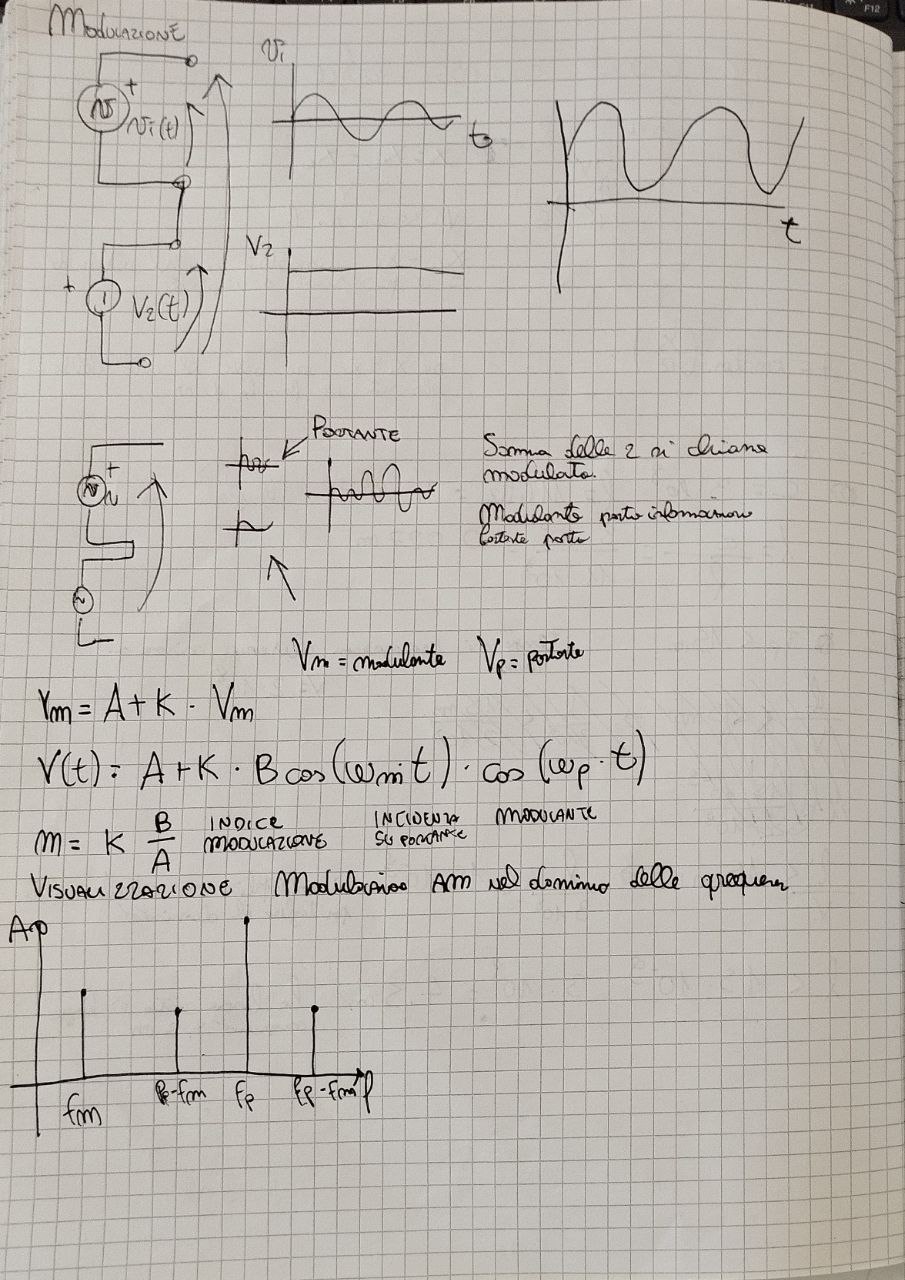 MODULAZIONE
Vi
+
Vi(t)
t
t
V2
+
V2(t)
PORTANTE
+
Somma delle 2 si chiama
modulata.
Modulante porta informazione
porta
Vm = modulante Vp = portante
Vm = A + K · Vm
V(t) = A + K · B cos(ωm t) · cos(ωp · t)
m = K B/A INDICE MODULAZIONE INCIDENZA SU PORTANTE MODULANTE
VISUALIZZAZIONE Modulazione AM nel dominio delle
A
fm fp-fm Fp Fp-Fm f